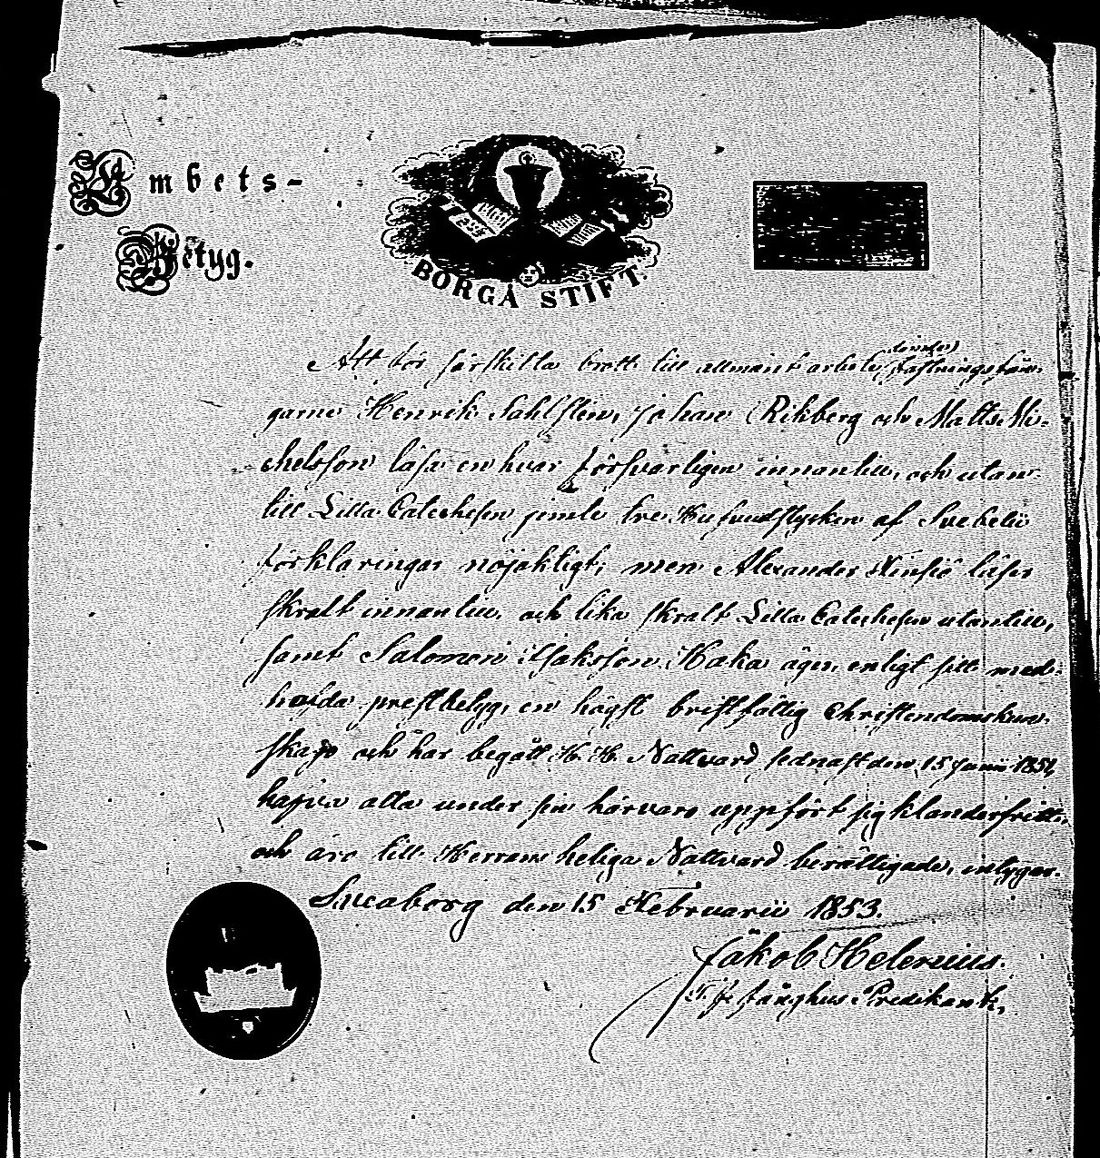 Embets-
Betyg.
BORGÅ STIFT.
Att för särskilta brott till allmänt arbete dömde fästningsfån-
garne Henrik Sahlsten, Johan Rikberg och Matts Mi-
chelsson läsa en hvar försvarligen innantill, och utan-
till Lilla Catechesen jemte tre Hufvudstycken af Svebelii
förklaringar nöjaktigt; men Alexander läser
skralt innantill, och lika skralt Lilla Catechesen utantill,
samt Salomon Isaksson Haka äger, enligt sitt med-
hafda prestbetyg, en högst bristfällig Christendomskun-
skap och har begått H. H. Nattvard sednast den 15 Junii 1851,
hafva alla under sin härvaro uppfört sig klanderfritt,
och äro till Herrans heliga Nattvard berättigade, intygar.
Sveaborg den 15 Februarii 1853.
Jakob Helenius.
T. f. Fånghus Predikant,